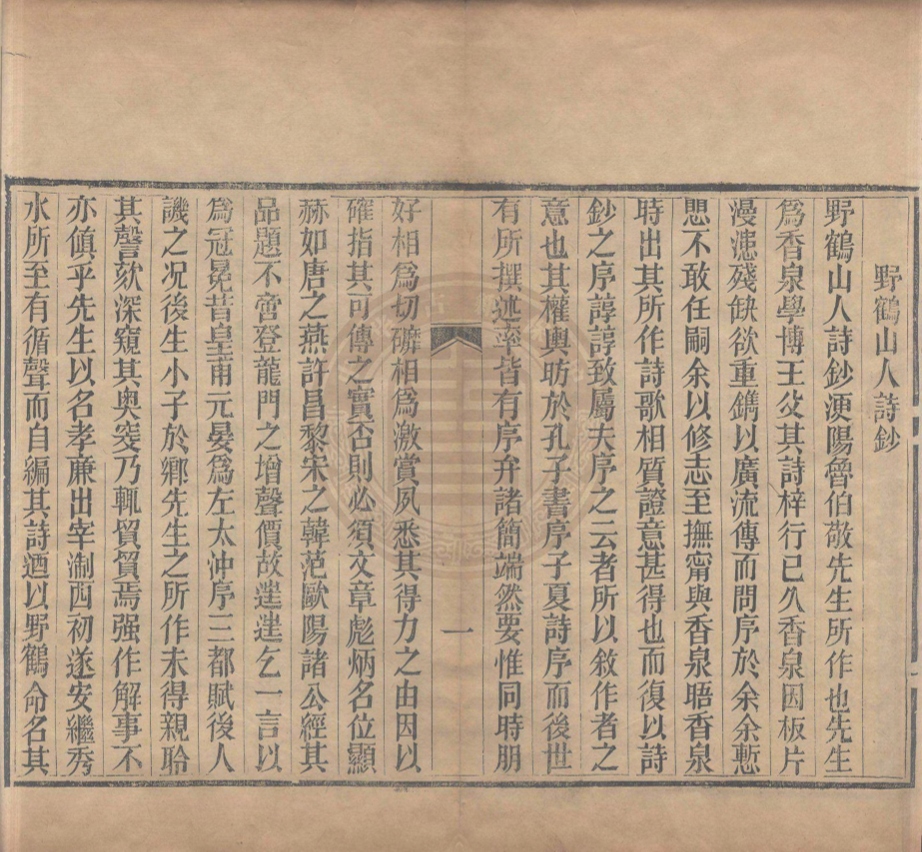 野鶴山人詩鈔
野鶴山人詩鈔浭陽魯伯敬先生所作也先生
爲香泉學博王父其詩梓行已久香泉因板片
漫漶殘缺欲重鐫以廣流傳而問序於余余慙
思不敢任嗣余以修志至撫甯與香泉晤香泉
時出其所作詩歌相質證意甚得也而復以詩
鈔之序諄諄致屬夫序之云者所以敘作者之
意也其權輿昉於孔子書序子夏詩序而後世
有所撰述率皆有序弁諸簡端然要惟同時朋
一
好相爲切礳相爲激賞夙悉其得力之由因以
確指其可傳之實否則必須文章彪炳名位顯
赫如唐之燕許昌黎宋之韓范歐陽諸公經其
品題不啻登龍門之增聲價故遑遑乞一言以
爲冠冕昔皇甫元晏爲左太沖序三都賦後人
譏之况後生小子於鄉先生之所作未得親聆
其謦欬深窺其奧窔乃輒貿貿焉强作解事不
亦傎乎先生以名孝廉出宰淛西初遂安繼秀
水所至有循聲而自編其詩迺以野鶴命名其